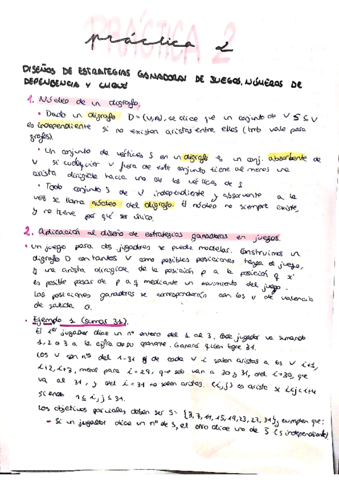 PRÁCTICA 2
práctica 2
DISEÑOS DE ESTRATEGIAS GANADORAS DE JUEGOS, NÚMEROS DE
DEPENDENCIA Y CLIQUE
1. Núcleo de un digrafo.
• Dado un digrafo D=(V,A), se dice que un conjunto de V S ⊆ V
es independiente si no existen aristas entre ellos (tmb vale para
grafos).
• Un conjunto de vértices S en un digrafo es un conj. absorbente de
V si cualquier V fuera de este conjunto tiene al menos una
arista dirigida hacia uno de los vértices de S
• Todo conjunto S de V independiente y absorbente a la
vez se llama núcleo del digrafo. El núcleo no siempre existe
y no tiene por qué ser único.
2. Aplicación al diseño de estrategias ganadoras en juegos.
• Un juego para dos jugadores se puede modelar. Construimos un
digrafo D con tantos V como posibles posiciones tenga el juego,
y una arista dirigida de la posición p a la posición q si
es posible pasar de p a q mediante un movimiento del juego.
Las posiciones ganadoras se corresponderán con los V de valencia
de salida 0.
• Ejemplo 1 (sumar 31).
El 1er jugador dice un nº entero del 1 al 3. Cada jugador va sumando
1, 2 o 3 a la cifra de su Ganará quien logre 31.
Los V son nºs del 1-31 y de cada V i salen aristas a los V i+1,
i+2, i+3, menos para i=29, que solo van a 30 y 31, del i=30, que
va al 31, y del i=31 no salen aristas. (i,j) es arista si i<j≤i+4
siendo 1≤i, j≤31.
Los objetivos parciales deben ser S= {3,7,11,15,19,23,27,31}, cumplen que:
- Si un jugador dice un nº de S, el otro dice uno de S (S independiente)